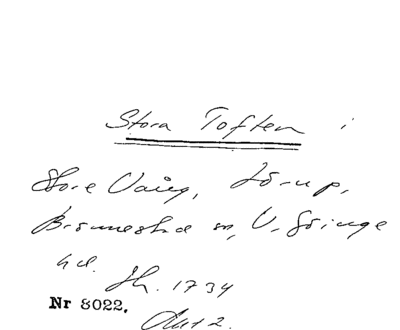 Stora Toften i
Store Vång, Jörup,
Brönnestad sn, V. Göinge
hd. Jh. 1734
Nr 8022. Akt 2.